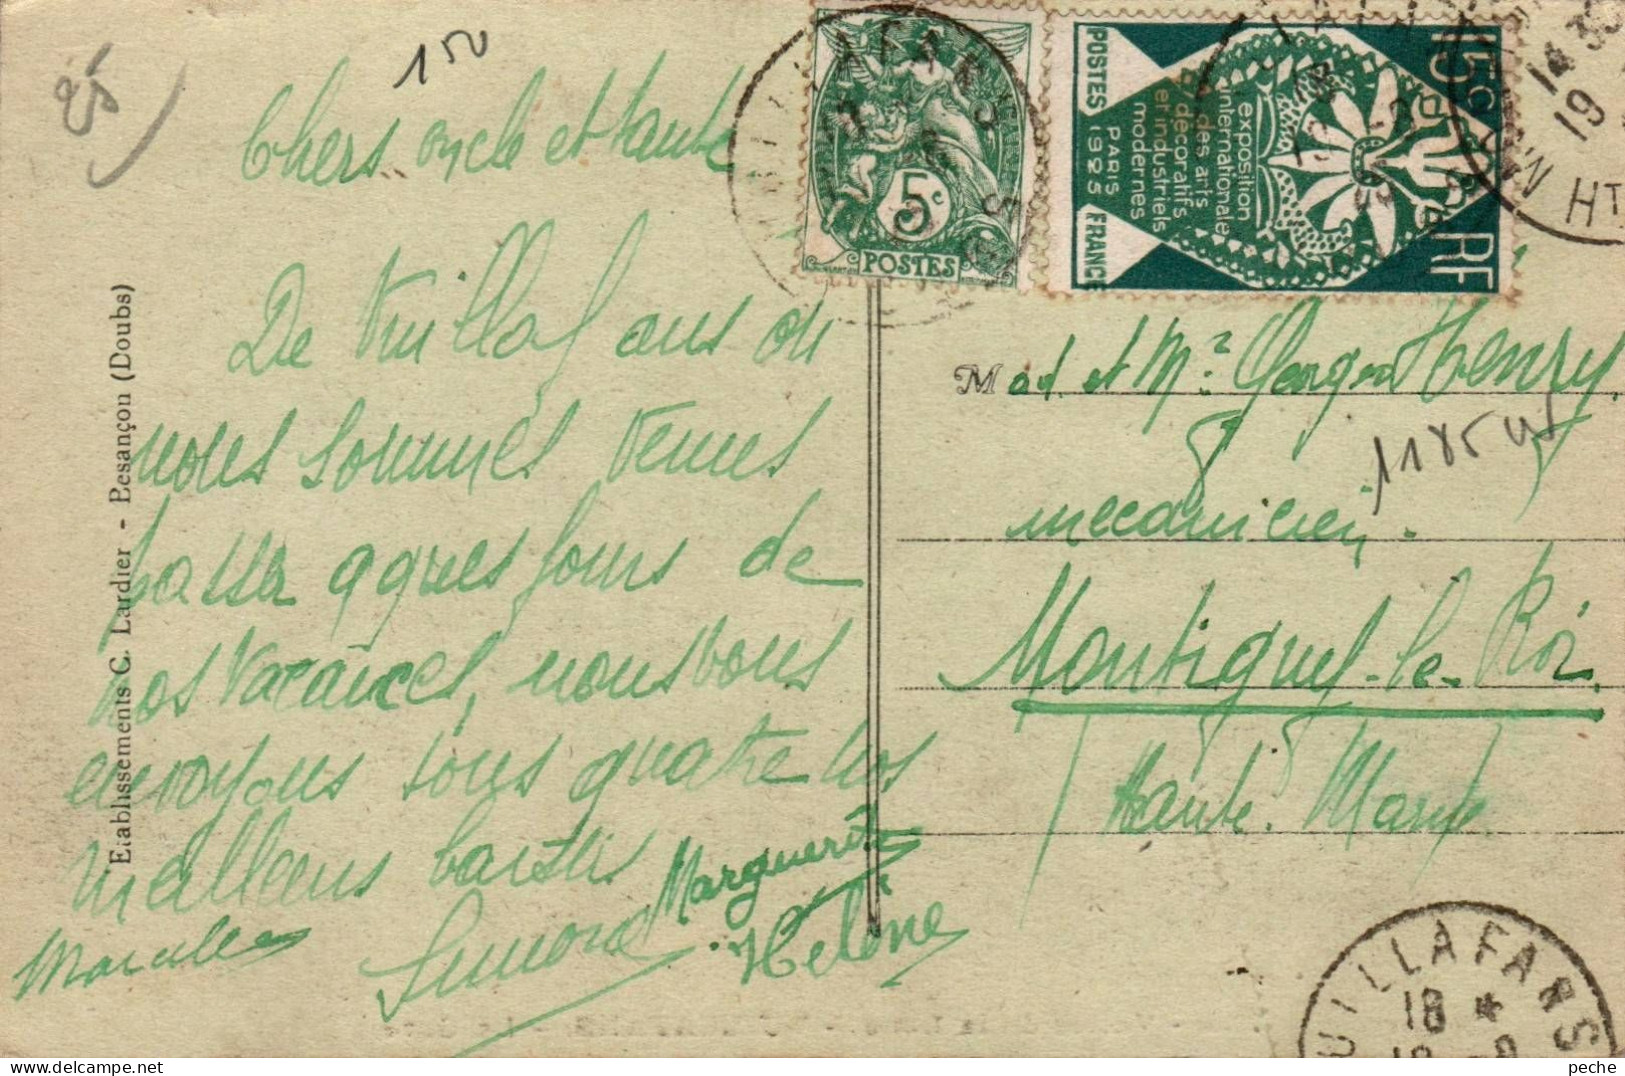 25
150
Chers oncle et tante
De Vuillafans où
nous sommes venus
passer qques jours de
nos vacances, nous vous
envoyons tous quatre nos
meilleurs baisers
Marguerite
Marcelle
Simone
Hélène
Etablissements C. Lardier - Besançon (Doubs)
VUILLAFANS
5c
POSTES
POSTES FRANCE
PARIS 1925
exposition
internationale
des arts
décoratifs
et industriels
modernes
15c
RF
14 35
19
HTE
Mad. et Mr Georges Henry
mécanicien
1185
Montigny-le-Roi
Haute-Marne
VUILLAFANS
18 *
peche